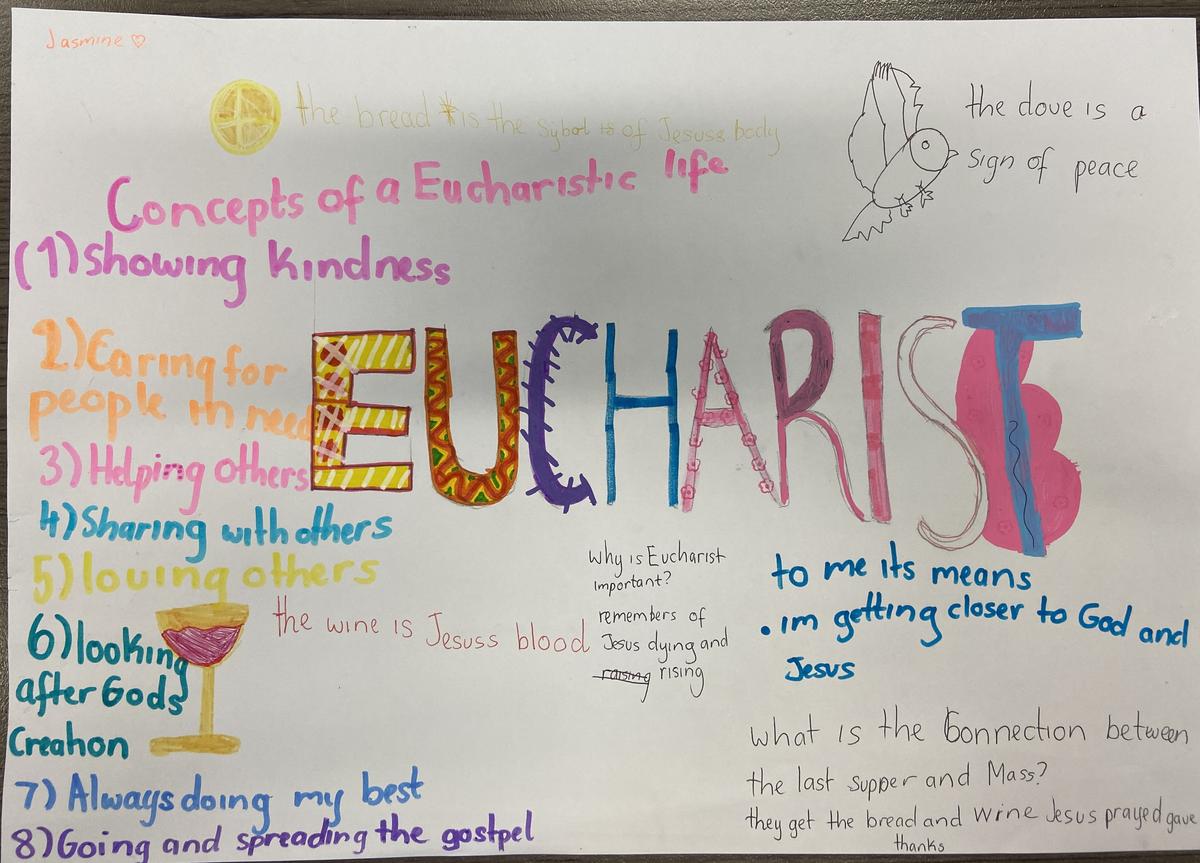 Jasmine ♡
the bread is the sybol is of Jesuss body
the dove is a
sign of peace
Concepts of a Eucharistic life
(1) showing kindness
2) Caring for
people in need
3) Helping others
4) Sharing with others
5) loving others
6) looking
after Gods
Creation
7) Always doing my best
8) Going and spreading the gostpel
EUCHARIST
the wine is Jesuss blood
why is Eucharist
important?
remembers of
Jesus dying and
raising rising
to me its means
. im getting closer to God and
Jesus
what is the Connection between
the last supper and Mass?
they get the bread and wine Jesus prayed gave
thanks